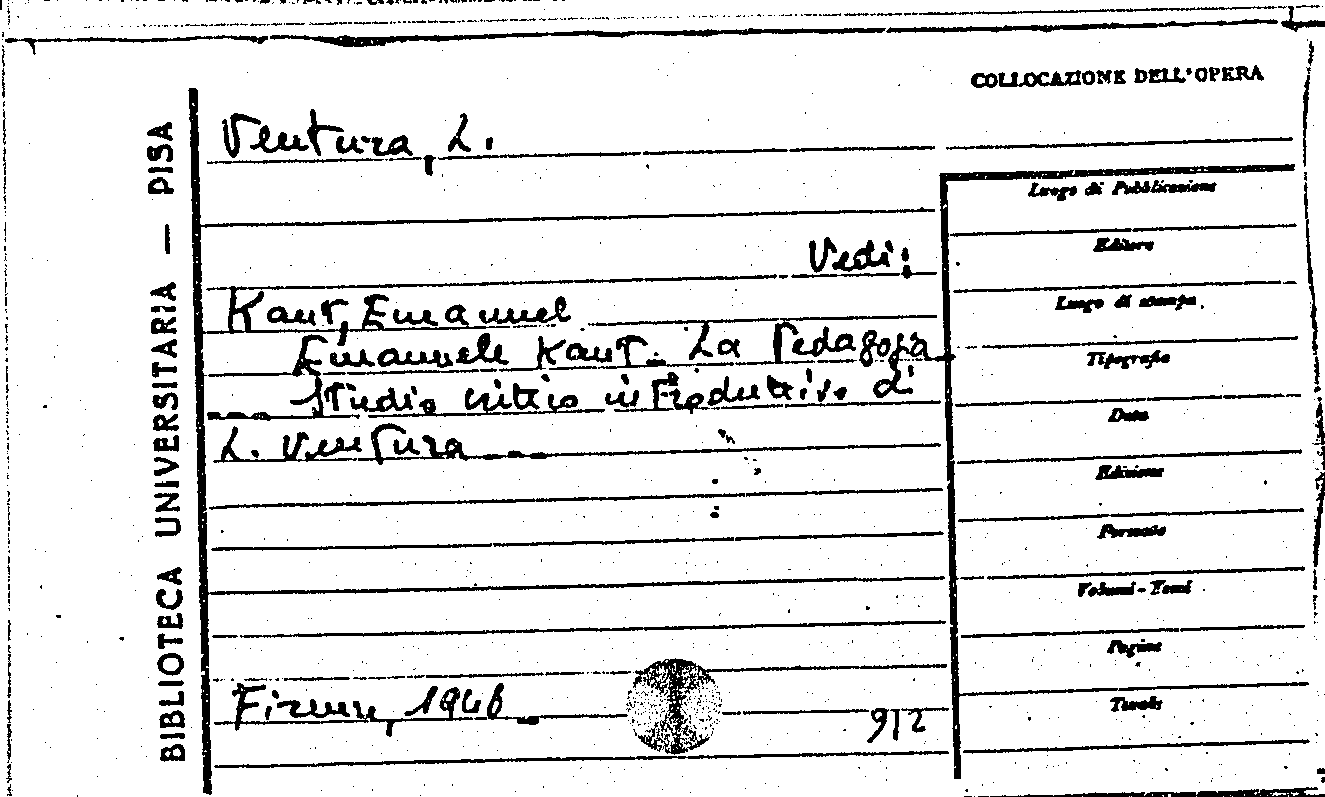 COLLOCAZIONE DELL'OPERA
BIBLIOTECA UNIVERSITARIA — PISA
Ventura, L.
Vedi:
Kant, Emanuel
Emanuele Kant. La Pedagogia
--- Studio critico introduttivo di
L. Ventura ---
Firenze, 1946
912
Luogo di Pubblicazione
Editore
Luogo di stampa
Tipografia
Data
Edizione
Formato
Volumi - Tomi
Pagine